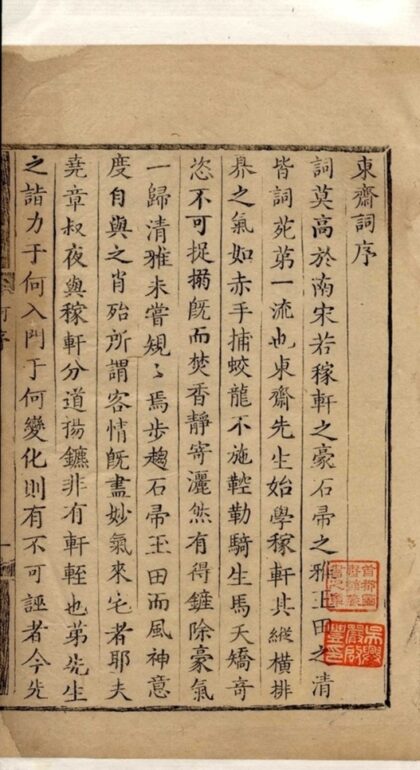 東齋詞序
詞莫高於南宋若稼軒之豪石帚之雅玉田之清
皆詞苑第一流也東齋先生始學稼軒其縱橫排
奡之氣如赤手捕蛟龍不施鞚勒騎生馬夭矯奇
恣不可捉搦旣而焚香靜寄灑然有得鏟除豪氣
一歸清雅未嘗䂓〻焉步趨石帚玉田而風神意
度自與之肖殆所謂客情旣盡妙氣來宅者耶夫
堯章叔夜與稼軒分道揚鑣非有軒輊也苐先生
之詣力于何入門于何變化則有不可誣者今先
詞序
一
首都圖
書館藏
書之章
吳興
嚴啟
豐印